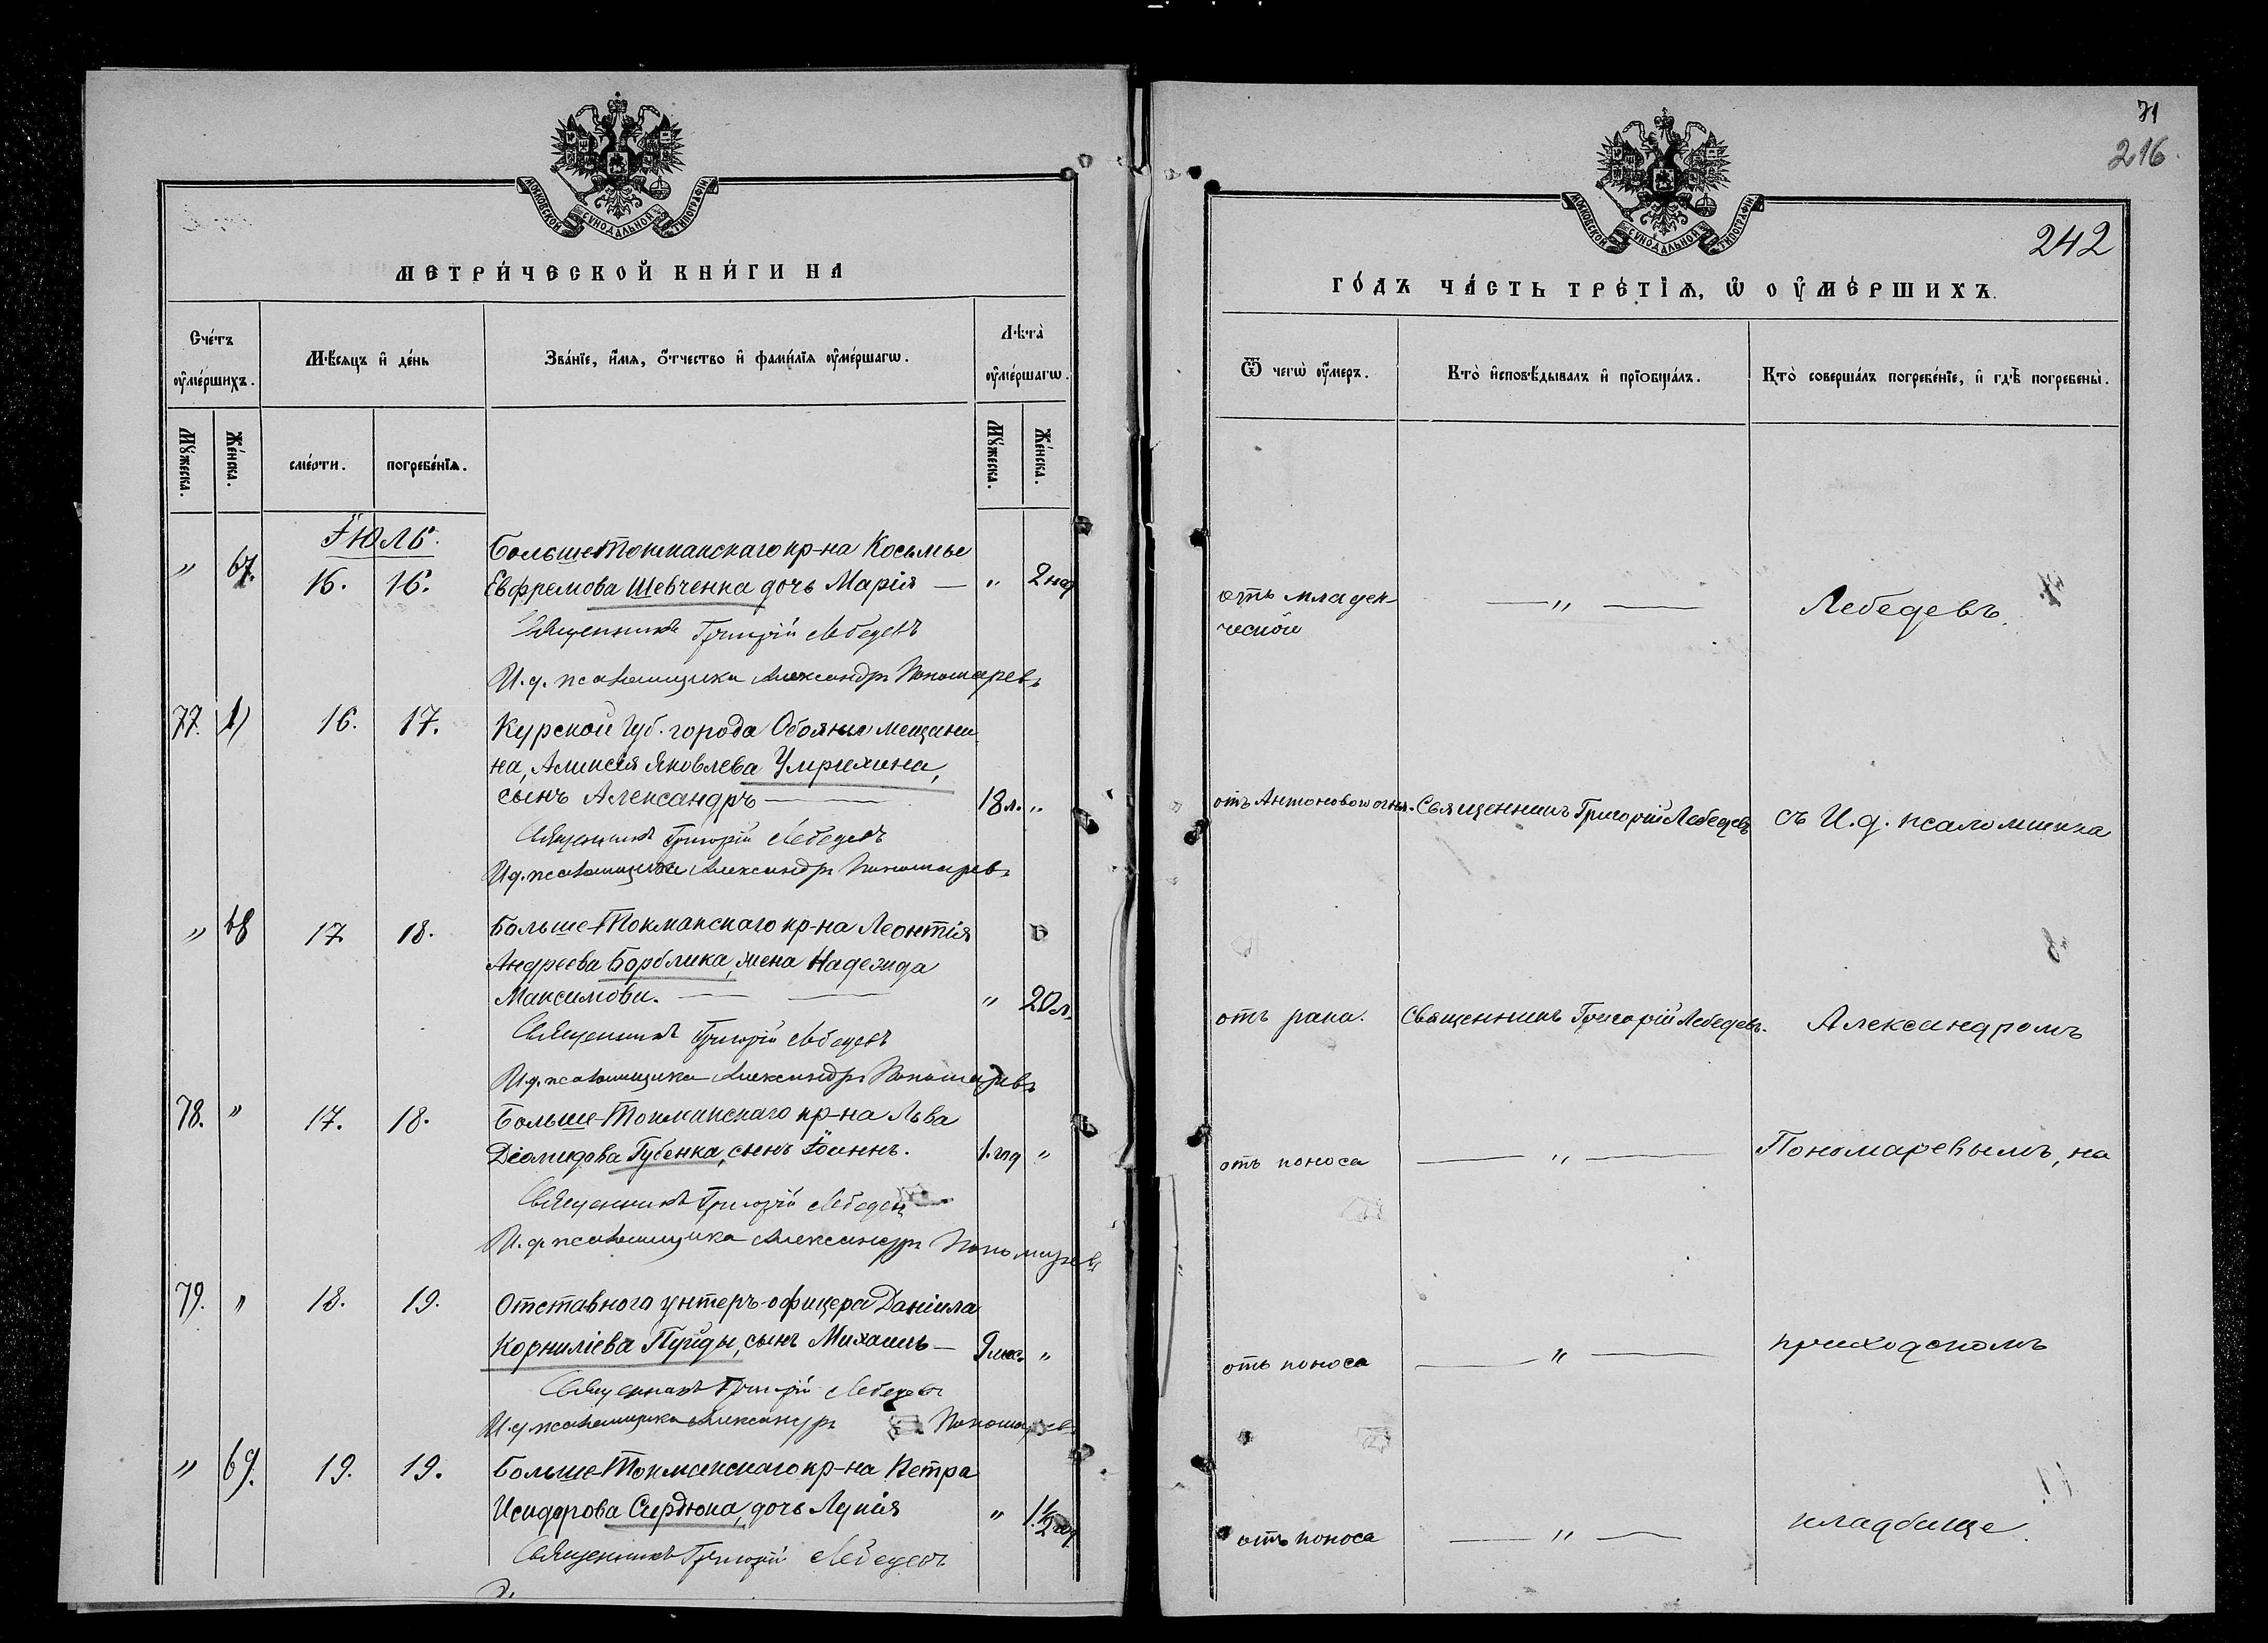 МОСКОВСКОЙ СѴНОДАЛЬНОЙ ТИПОГРАФІИ
МЕТРИ́ЧЕСКОЙ КНИ́ГИ НА
Сче́тъ ᲂу҆ме́ршихъ.
Мѣ́сяцъ и҆ де́нь
Зва́нїе, и҆́мѧ, ѻ҆́тчество и҆ фамн́лїѧ ᲂу҆ме́ршагѡ.
Лѣта̀ ᲂу҆ме́ршагѡ.
Мꙋ́жеска.
Же́нска.
сме́рти.
погребе́нїѧ.
Мꙋ́жеска.
Же́нска.
Іюль.
" 67. 16. 16. Больше-Токмакскаго кр-на Косьмы
Евфремова Шевченка дочь Марія — " 2 нед
Священникъ Григорій Лебедевъ
И. д. псаломщика Александръ Пономаревъ
77. 16. 17. Курской Губ. города Обояни мещани
на, Алексѣя Яковлева Умрихина,
сынъ Александръ — 18 л. "
Священникъ Григорій Лебедевъ
И д. псаломщика Александръ Пономаревъ
" 68 17. 18. Больше-Токмакскаго кр-на Леонтія
Андреева Борблика, жена Надежда
Максимова. — — " 20 л.
Священникъ Григорій Лебедевъ
И. д. псаломщика Александръ Пономаревъ
78. " 17. 18. Больше-Токмакскаго кр-на Льва
Діомидова Губенка, сынъ Іоаннъ. 1. год "
Священникъ Григорій Лебедев
И. д. псаломщика Александръ Пономаревъ
79. " 18. 19. Отставного унтеръ-офицера Даніила
Корниліева Пуйды, сынъ Михаилъ — 9 мес. "
Священникъ Григорій Лебедевъ
И. д. псаломщика Александръ Пономаревъ
" 69. 19. 19. Больше-Токмакскаго кр-на Петра
Исидорова Сердюка, дочь Лукія " 1. 1/2 год
Священникъ Григорій Лебедевъ
71
216.
242
МОСКОВСКОЙ СѴНОДАЛЬНОЙ ТИПОГРАФІИ
ГО́ДЪ ЧА́СТЬ ТРЕ́ТЇѦ, Ѡ҆ ОУ҆МЕ́РШИХЪ.
Ѿ чегѡ̀ ᲂу҆́меръ.
Кто̀ и҆сповѣ́дывалъ и҆ прїобща́лъ.
Кто̀ соверша́лъ погребе́нїе, и҆ гдѣ̀ погребены̀.
отъ младен-
ческой — " — Лебедевъ
отъ Антонового огня. Священникъ Григорій Лебедевъ съ И. д. псаломщика
отъ рака. Священникъ Григорій Лебедевъ. Александромъ
отъ поноса — " — Пономаревымъ, на
отъ поноса — " — приходскомъ
отъ поноса — " — кладбище